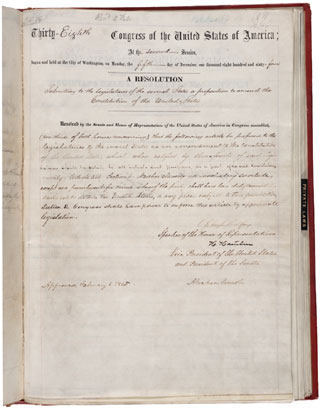 Thirty-Eighth Congress of the United States of America;
At the second Session,
begun and held at the City of Washington, on Monday, the fifth day of December, one thousand eight hundred and sixty-four
A RESOLUTION
Submitting to the legislatures of the several States a proposition to amend the
Constitution of the United States.
Resolved by the Senate and House of Representatives of the United States of America in Congress assembled,
(two thirds of both houses concurring), that the following article be proposed to the
legislatures of the several States as an amendment to the Constitution
of the United States, which, when ratified by three-fourths of said
shall be valid, to all intents and purposes, as a part of the said
Section 1. Neither slavery nor involuntary servitude,
except as a punishment for crime whereof the party shall have been duly convicted,
shall exist within the United States, or any place subject to their jurisdiction.
Section 2. Congress shall have power to enforce this article by appropriate
legislation.
Speaker of the House of Representatives
H. Hamlin
Vice President of the United States
and President of the Senate
Approved, February 1, 1865.
Abraham Lincoln
PRIVATE LAWS